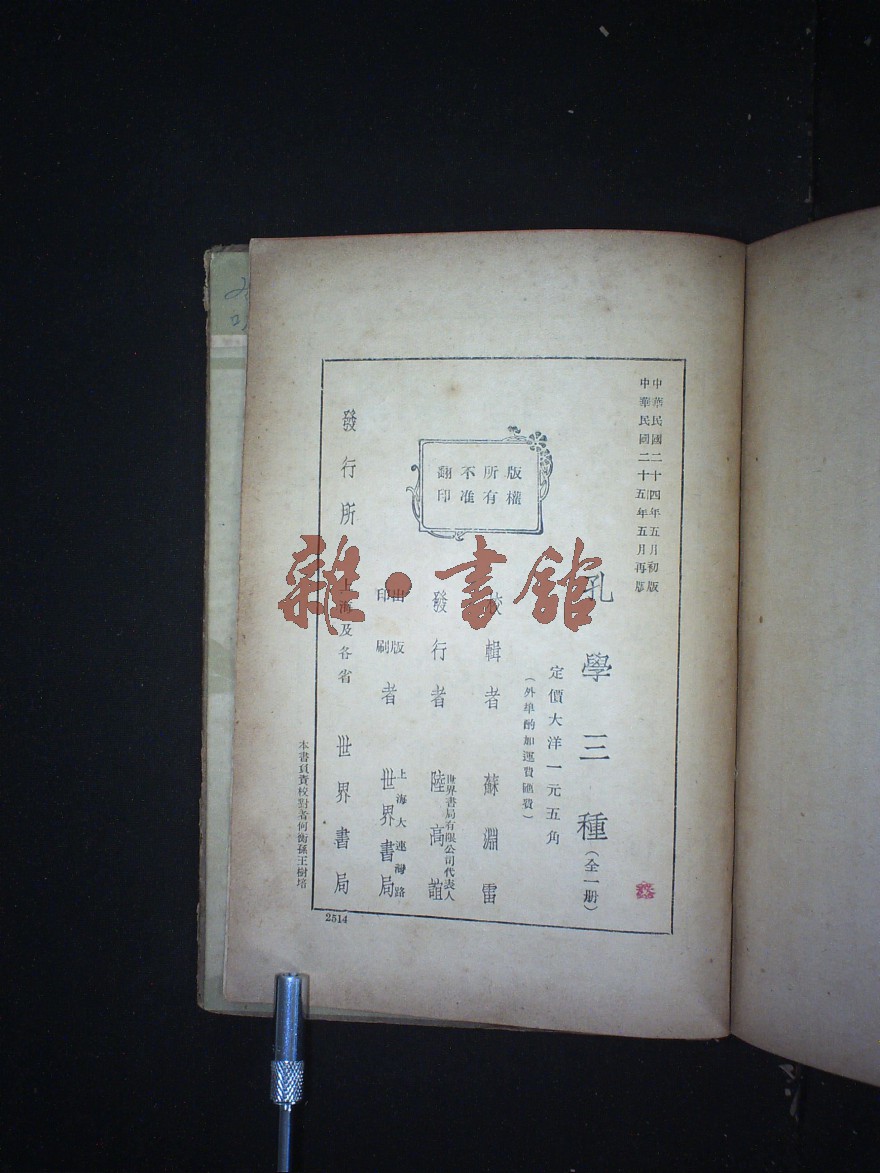 中華民國二十四年五月初版
中華民國二十五年五月再版
孔學三種(全一册)
定價大洋一元五角
(外埠酌加運費匯費)
版權
所有
不准
翻印
校輯者 蘇淵雷
發行者 世界書局有限公司代表人 陸高誼
出版印刷者 上海大連灣路 世界書局
發行所 上海及各省 世界書局
本書負責校對者何衡孫王樹培
2514
雜·書館